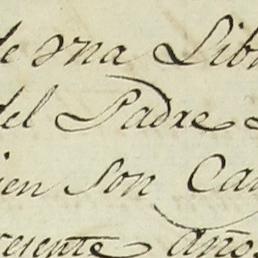 de una Lib
del Padre
ien son Ca
resente año